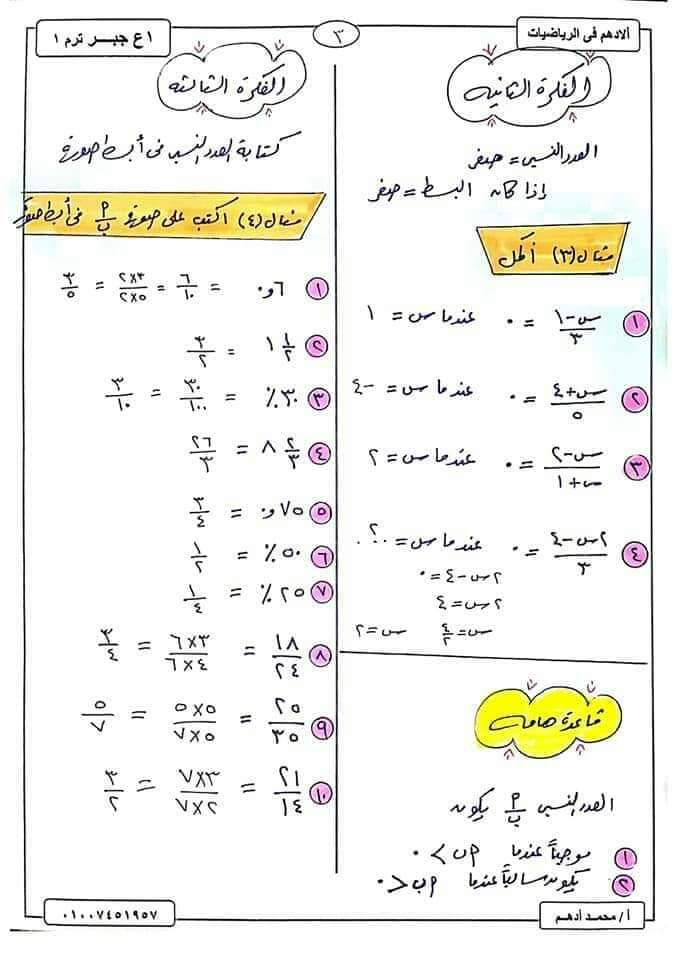 ألادهم فى الرياضيات
٣
١ع جبـر ترم ١
الفكرة الثانيه
العدد النسبى = صفر
إذا كان البسط = صفر
مثال (٣) أكمل
١ (س-١)/٣ = ٠ عندما س = ١
٢ (س+٤)/٥ = ٠ عندما س = -٤
٣ (س-٢)/(س+١) = ٠ عندما س = ٢
٤ (٢س-٤)/٣ = ٠ عندما س = ..؟..
٢س-٤ = ٠
٢س = ٤
س = ٤/٢ س = ٢
قاعدة هامه
العدد النسبى م/ب يكون
١ موجباً عندما م ب > ٠
٢ يكون سالباً عندما م ب < ٠
الفكرة الثالثه
كتابة العدد النسبى فى أبسط صورة
مثال (٤) اكتب على صورة م/ب فى أبسط صورة
١ ٦و٠ = ٦/١٠ = ٢×٣/٢×٥ = ٣/٥
٢ ١ ١/٢ = ٣/٢
٣ ٣٠٪ = ٣٠/١٠٠ = ٣/١٠
٤ ٨ ٢/٣ = ٢٦/٣
٥ ٧٥و٠ = ٣/٤
٦ ٥٠٪ = ١/٢
٧ ٢٥٪ = ١/٤
٨ ١٨/٢٤ = ٦×٣/٦×٤ = ٣/٤
٩ ٢٥/٣٥ = ٥×٥/٧×٥ = ٥/٧
١٠ ٢١/١٤ = ٧×٣/٧×٢ = ٣/٢
أ/ محمـد أدهـم
٠١٠٠٧٤٥١٩٥٧